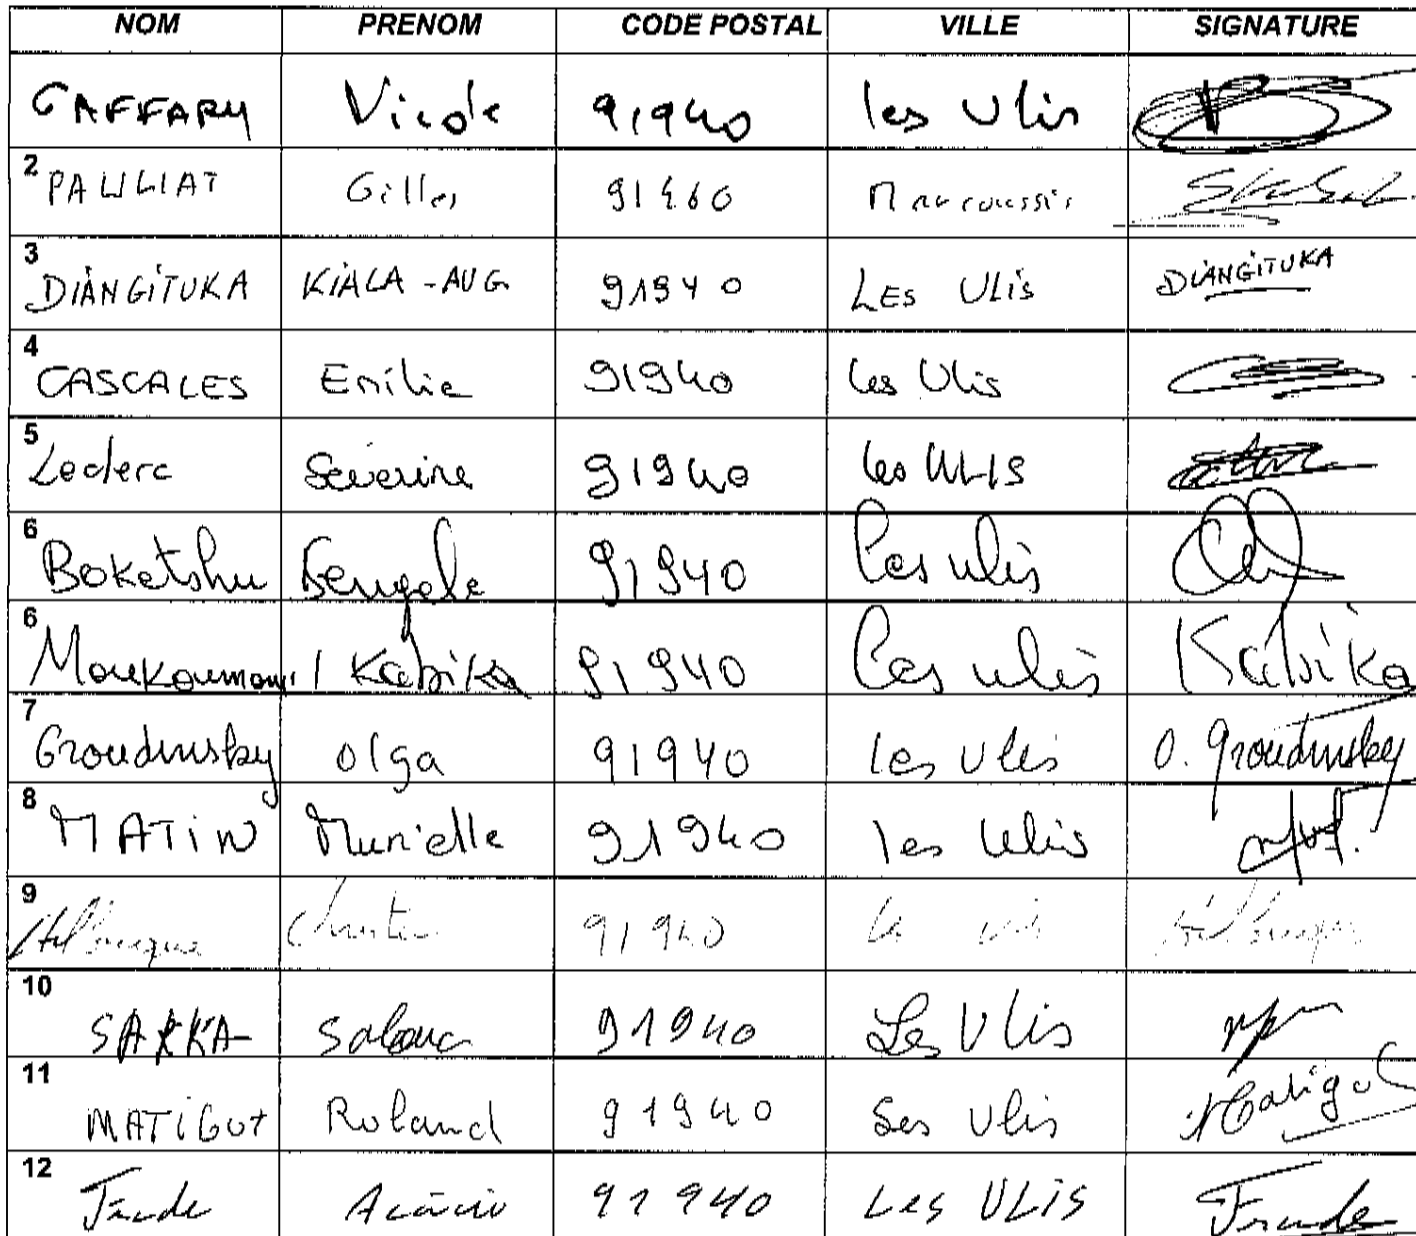 NOM PRENOM CODE POSTAL VILLE SIGNATURE
GAFFARY Nicole 91940 les Ulis
2 PAULIAT Gilles 91460 Marcoussis
3 DIANGITUKA KIALA-AUG. 91940 LES ULIS DIANGITUKA
4 CASCALES Emilie 91940 les Ulis
5 Leclerc Séverine 91940 les ULIS
6 Boketshu 91940 Les ulis
6 Kabika 91940 Les ulis Kabika
7 Groudinsky Olga 91940 les Ulis O. Groudinsky
8 MATIN Murielle 91940 les Ulis
9 91940
10 91940 Les Ulis
11 MATIGOT Roland 91940 Les Ulis Matigot
12 Frade Acácio 91940 Les ULIS Frade